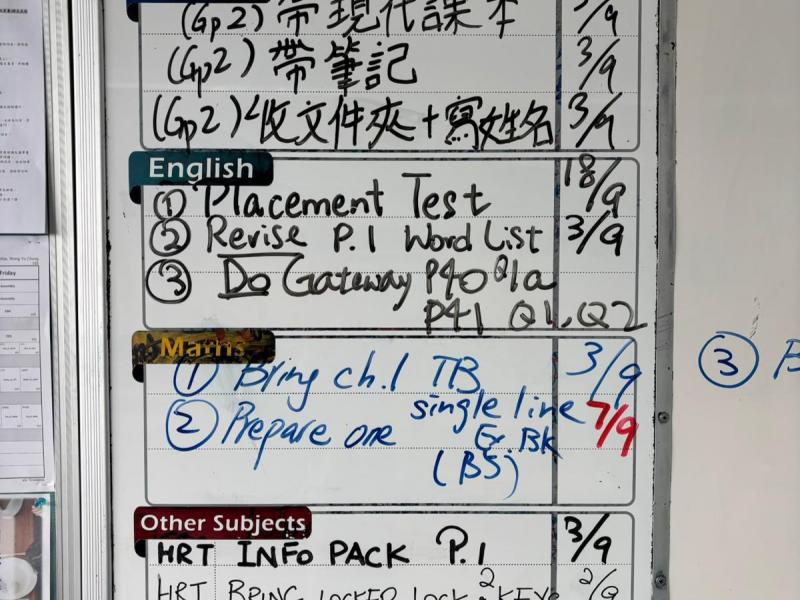 (Gp2) 帶現代課本 3/9
(Gp2) 帶筆記 3/9
(Gp2) 收文件夾+寫姓名 3/9
English
① Placement Test 18/9
② Revise P.1 Word List 3/9
③ Do Gateway P40 Q1a
P41 Q1, Q2
Maths
① Bring ch.1 TB 3/9
② Prepare one single line 7/9
Ex. Bk
(B5)
③ B
Other Subjects
HRT INFO PACK P.1 3/9
HRT BRING LOCKER LOCK 2 KEYS 2/9
Friday